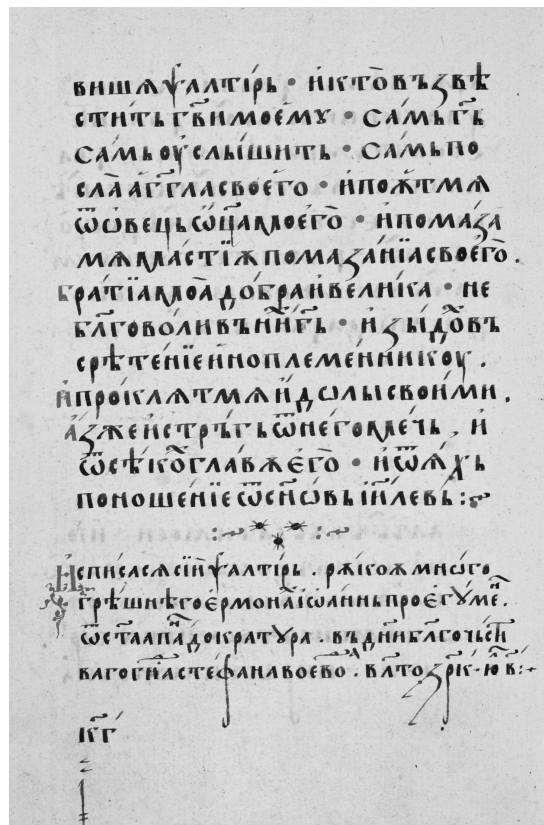 вишѧ ѱалтірь • и҆ кто̀ въꙁвѣ
стить гв҃и моему • самь г҃ь
самь оуслышить • самь по
сла̀ а҆гг҃ла своего • и҆ поѧ́т мѧ
ѿ ѡвець ѡц҃а моего̀ • и҆ помаꙁа
мѧ мастїѫ помаꙁанїа своего̀ .
братїа моа̀ добра и҆ велика • не
бл҃говоли въ нихь г҃ь • иꙁыдо̀ въ
срѣтенїе иноплеменникоу .
и҆ проклѧт мѧ и҆дѡлы своими .
аꙁ же и҆стрьгь ѿ него мечь . и҆
ѿсѣкѡ̀ главѫ е҆го̀ • и҆ ѿѧхь
поношенїе ѿ сн҃ѡвь і҆и҃левь :
Исписасѧ сїи ѱалтирь . рѫкоѫ мнѡго
грѣшнѣго е҆рмонаⷯ іѡаннь проегꙋмеⷩ .
ѿ ст҃аа пандократѡра . въ дн҃и бл҃гочьсти
ваго гн҃а стефана воево . в лⷮо ꙁрк҃ . ю҆лⷧ в҃ :
кг҃